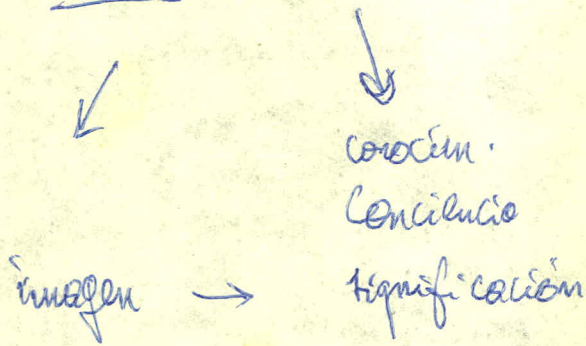 conocim.
Conciencia
imagen → significación